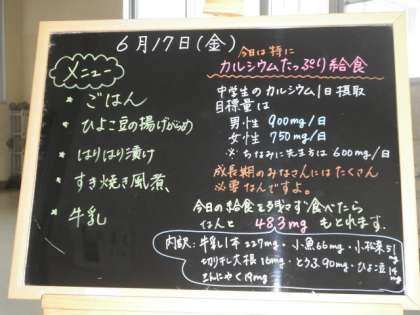 6月17日(金)
メニュー
* ごはん
* ひよこ豆の揚げがらめ
* はりはり漬け
* すき焼き風煮
* 牛乳
今日は特に
カルシウムたっぷり給食
中学生のカルシウム1日摂取
目標量は
男性 900mg/日
女性 750mg/日
※ちなみに先生方は 600mg/日
成長期のみなさんにはたくさん
必要なんですよ。
今日の給食を残さず食べたら
なんと 483mg もとれます。
内訳:牛乳1本 227mg・小魚66mg・小松菜51mg
切り干し大根 16mg・とうふ90mg・ひよこ豆14mg
こんにゃく19mg